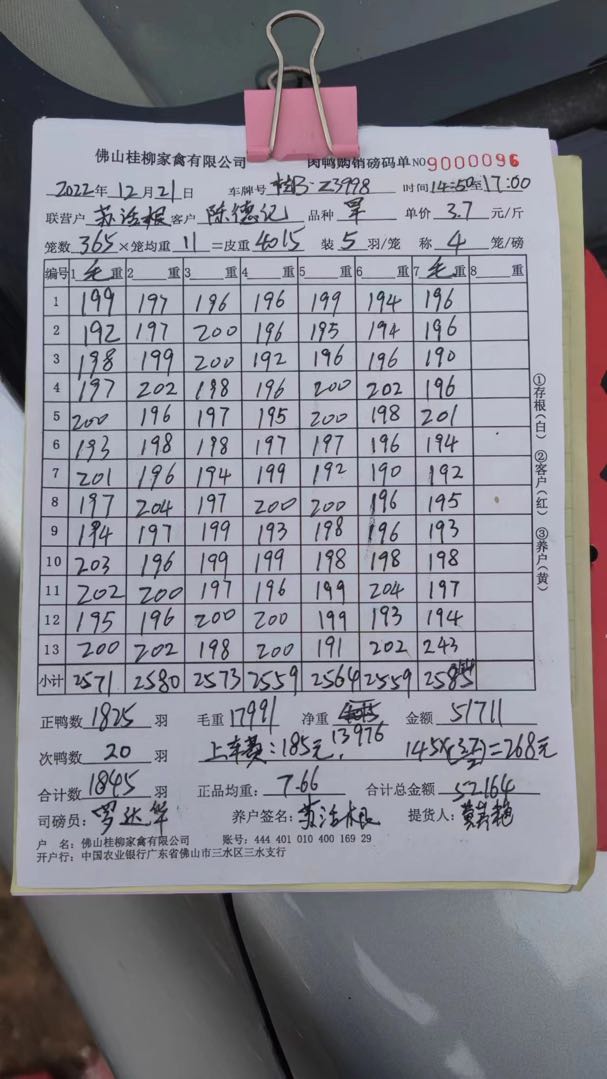 佛山桂柳家禽有限公司 肉鸭购销磅码单 NO 9000096
2022年12月21日 车牌号 桂B·Z3998 时间14:50至17:00
联营户 苏活根 客户 陈德记 品种 单价 3.7 元/斤
笼数 365 ×笼均重 11 =皮重 4015 装 5 羽/笼 称 4 笼/磅
编号 1 毛 重 2 重 3 重 4 重 5 重 6 重 7 毛 重 8 重
1 199 197 196 196 199 194 196
2 192 197 200 196 195 194 196
3 198 199 200 192 196 196 190
4 197 202 198 196 200 202 196
5 200 196 197 195 200 198 201
6 193 198 198 197 197 196 194
7 201 196 194 199 192 190 192
8 197 204 197 200 200 196 195
9 194 197 199 193 198 196 193
10 203 196 199 199 198 198 198
11 202 200 197 196 199 204 197
12 195 196 200 200 199 193 194
13 200 202 198 200 191 202 243
小计 2571 2580 2573 2559 2564 2559 2585
正鸭数 1825 羽 毛重 17991 净重 金额 51711
次鸭数 20 羽 上车费:185元, 13976 145×=268元
合计数 1845 羽 正品均重: 7.66 合计总金额 52164
司磅员: 罗达华 养户签名: 苏活根 提货人:
户 名: 佛山桂柳家禽有限公司 账号: 444 401 010 400 169 29
开户行: 中国农业银行广东省佛山市三水区三水支行
①存根(白) ②客户(红) ③养户(黄)